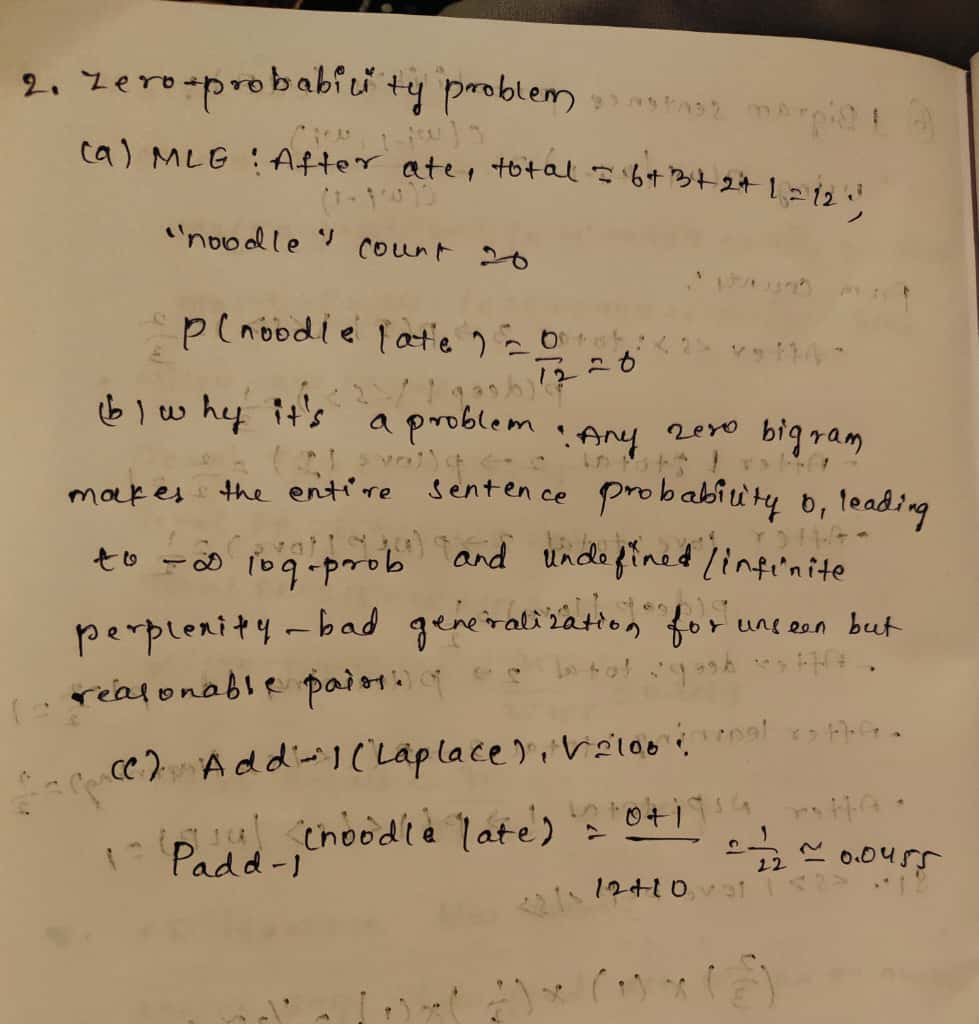 2. Zero-probability problem
(a) MLG : After ate, total = 6+3+2+1=12;
"noodle" count =0
P(noodle|ate) = 0/12 = 0
(b) why it's a problem : Any zero bigram
makes the entire sentence probability 0, leading
to -∞ log-prob and undefined/infinite
perplexity - bad generalization for unseen but
reasonable pairs.
(c). Add-1 (Laplace), V=100 :
Padd-1 (noodle|ate) = 0+1/12+10 = 1/22 ≈ 0.0455